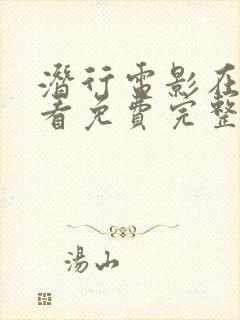 潛行電影在
看免費完整
湯山